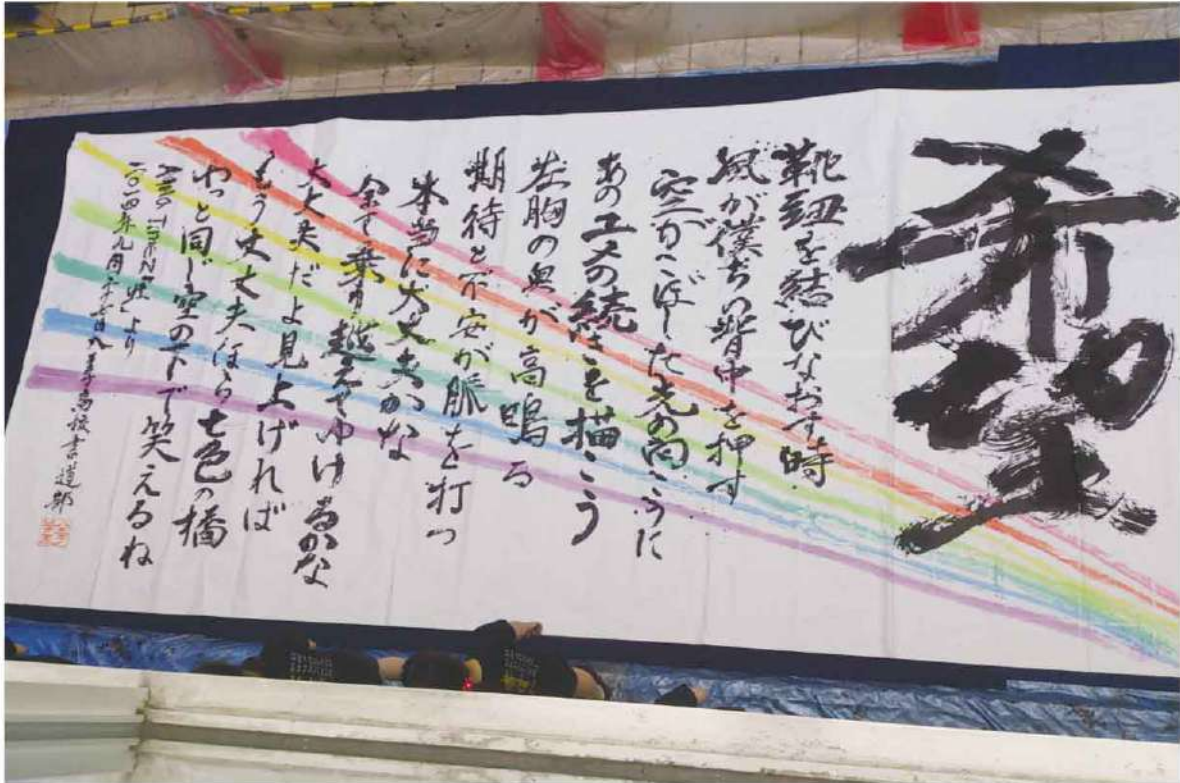 希望
靴紐を結びなおす時
風が僕らの背中を押す
空がこぼした光の向こうに
あのユメの続きを描こう
左胸の奥が高鳴る
期待と不安が脈を打つ
本当に大丈夫かな
全て乗り越えてゆけるかな
大丈夫だよ見上げれば
もう大丈夫ほら七色の橋
やっと同じ空の下で笑えるね
虹より
二〇二四年九月 高校書道部